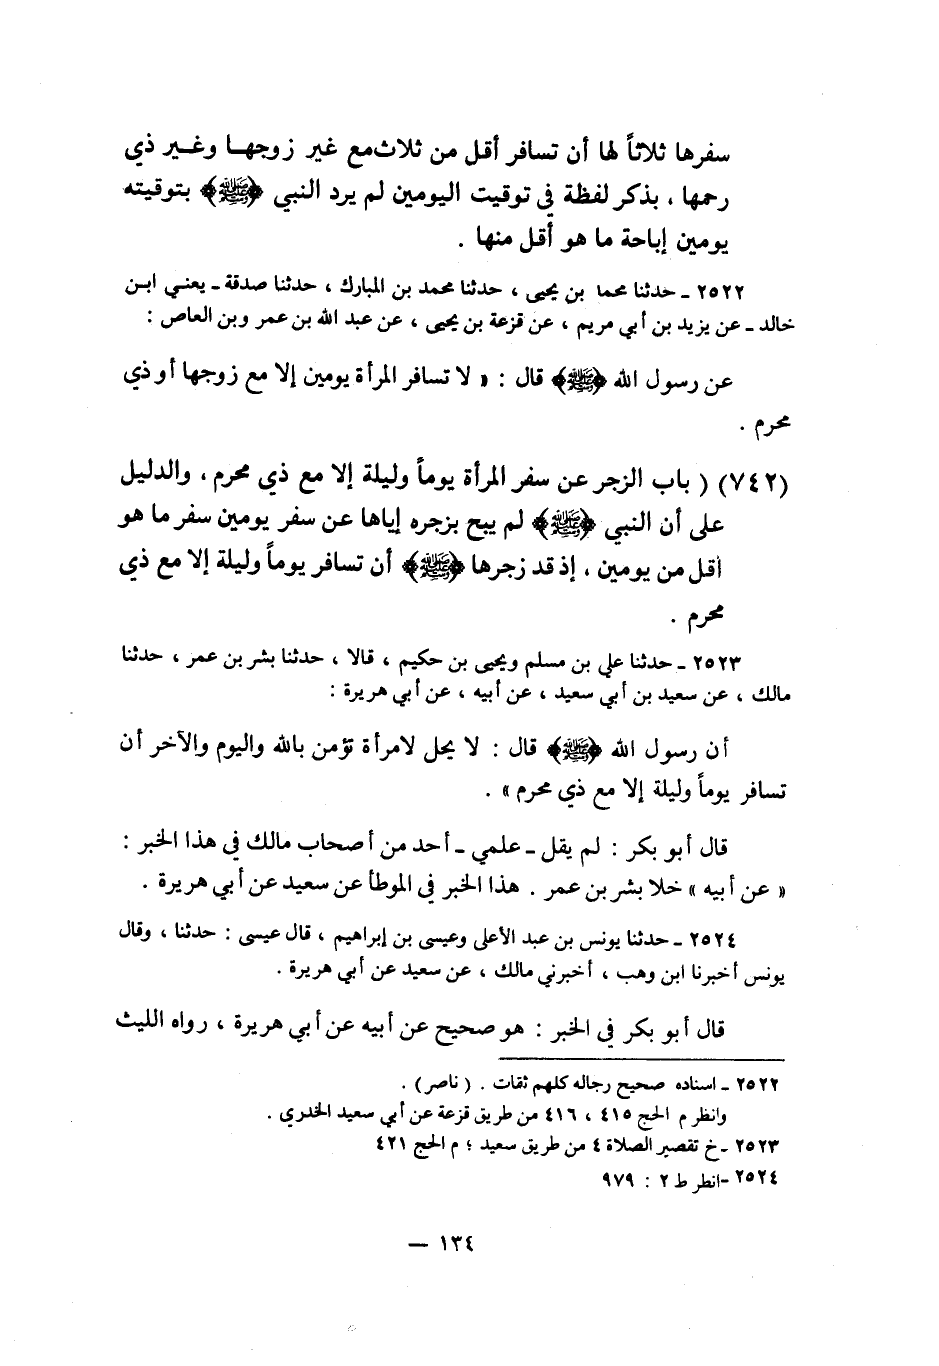 سفرها ثلاثاً لها أن تسافر أقل من ثلاث مع غير زوجهـا وغـير ذي
رحمها ، بذكر لفظة في توقيت اليومين لم يرد النبي ﴿ﷺ﴾ بتوقيته
يومين إباحة ما هو أقل منها .
٢٥٢٢ ـ حدثنا محما بن يحيى ، حدثنا محمد بن المبارك ، حدثنا صدقة ـ يعنـي ابـن
خالد ـ عن يزيد بن أبي مريم ، عن قزعة بن يحيى ، عن عبد الله بن عمر وبن العاص :
عن رسول الله ﴿ﷺ﴾ قال : « لا تسافر المرأة يومين إلا مع زوجها أو ذي
محرم .
(٧٤٢) ( باب الزجر عن سفر المرأة يوماً وليلة إلا مع ذي محرم ، والدليل
على أن النبي ﴿ﷺ﴾ لم يبح بزجره إياها عن سفر يومين سفر ما هو
أقل من يومين ، إذ قد زجرها ﴿ﷺ﴾ أن تسافر يوماً وليلة إلا مع ذي
محرم .
٢٥٢٣ ـ حدثنا علي بن مسلم ويحيى بن حكيم ، قالا ، حدثنا بشر بن عمر ، حدثنا
مالك ، عن سعيد بن أبي سعيد ، عن أبيه ، عن أبي هريرة :
أن رسول الله ﴿ﷺ﴾ قال : لا يحل لامرأة تؤمن بالله واليوم والآخر أن
تسافر يوماً وليلة إلا مع ذي محرم » .
قال أبو بكر : لم يقل ـ علمي ـ أحد من أصحاب مالك في هذا الخبر :
« عن أبيه » خلا بشر بن عمر . هذا الخبر في الموطأ عن سعيد عن أبي هريرة .
٢٥٢٤ ـ حدثنا يونس بن عبد الأعلى وعيسى بن إبراهيم ، قال عيسى : حدثنا ، وقال
يونس أخبرنا ابن وهب ، أخبرني مالك ، عن سعيد عن أبي هريرة .
قال أبو بكر في الخبر : هو صحيح عن أبيه عن أبي هريرة ، رواه الليث
٢٥٢٢ ـ اسناده صحيح رجاله كلهم ثقات . ( ناصر ) .
وانظر م الحج ٤١٥ ، ٤١٦ من طريق قزعة عن أبي سعيد الخدري .
٢٥٢٣ ـ خ تقصير الصلاة ٤ من طريق سعيد ؛ م الحج ٤٢١
٢٥٢٤ -انظر ط ٢ : ٩٧٩
١٣٤ —